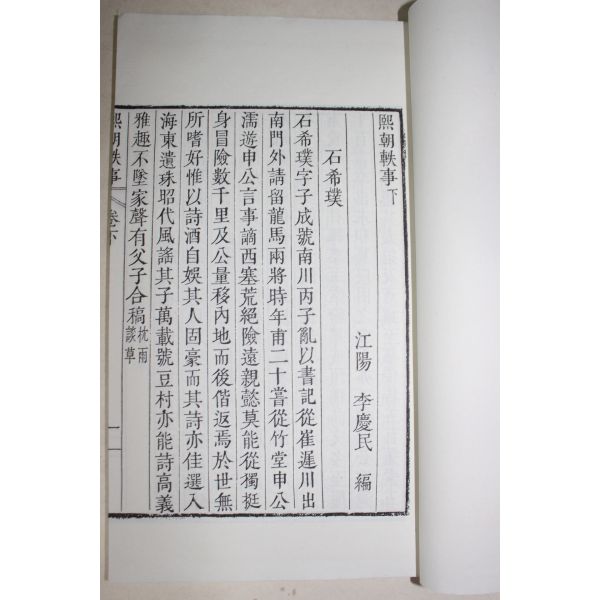 熙朝軼事下
江陽 李慶民 編
石希璞
石希璞字子成號南川丙子亂以書記從崔遲川出
南門外請留龍馬兩將時年甫二十嘗從竹堂申公
濡遊申公言事謫西塞荒絕險遠親懿莫能從獨挺
身冒險數千里及公量移內地而後偕返焉於世無
所嗜好惟以詩酒自娛其人固豪而其詩亦佳選入
海東遺珠昭代風謠其子萬載號豆村亦能詩高義
雅趣不墜家聲有父子合稿枕雨談草
熙朝軼事 卷下 一